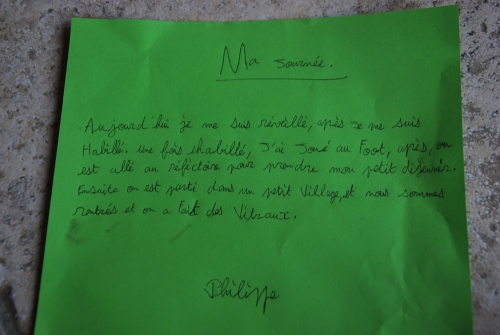 Ma journée.
Aujourd'hui je me suis réveillé, après je me suis
Habillé. une fois habillé, J'ai Joué au Foot, après, on
est allé au réfectoire pour prendre mon petit déjeuner.
Ensuite on est parti dans un petit Village, et nous sommes
rentrés et on a fait des Vitraux.
Philippe